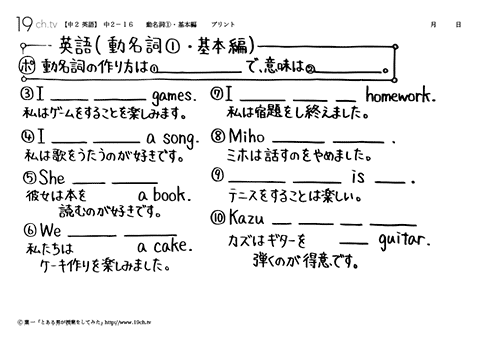 19ch.tv 【中2 英語】 中2－16 動名詞①・基本編 プリント 月 日
英語(動名詞①・基本編)
ポ 動名詞の作り方は①________で、意味は②________。
③I ____ ____ games.
私はゲームをすることを楽しみます。
④I ____ ____ a song.
私は歌をうたうのが好きです。
⑤She ____ ____ a book.
彼女は本を
読むのが好きです。
⑥We ____ ____ a cake.
私たちは
ケーキ作りを楽しみました。
⑦I ____ ____ ____ homework.
私は宿題をし終えました。
⑧Miho ____ ____.
ミホは話すのをやめました。
⑨____ ____ is ____.
テニスをすることは楽しい。
⑩Kazu ____ ____ ____ ____
____ guitar.
カズはギターを
弾くのが得意です。
©葉一「とある男が授業をしてみた」http://www.19ch.tv